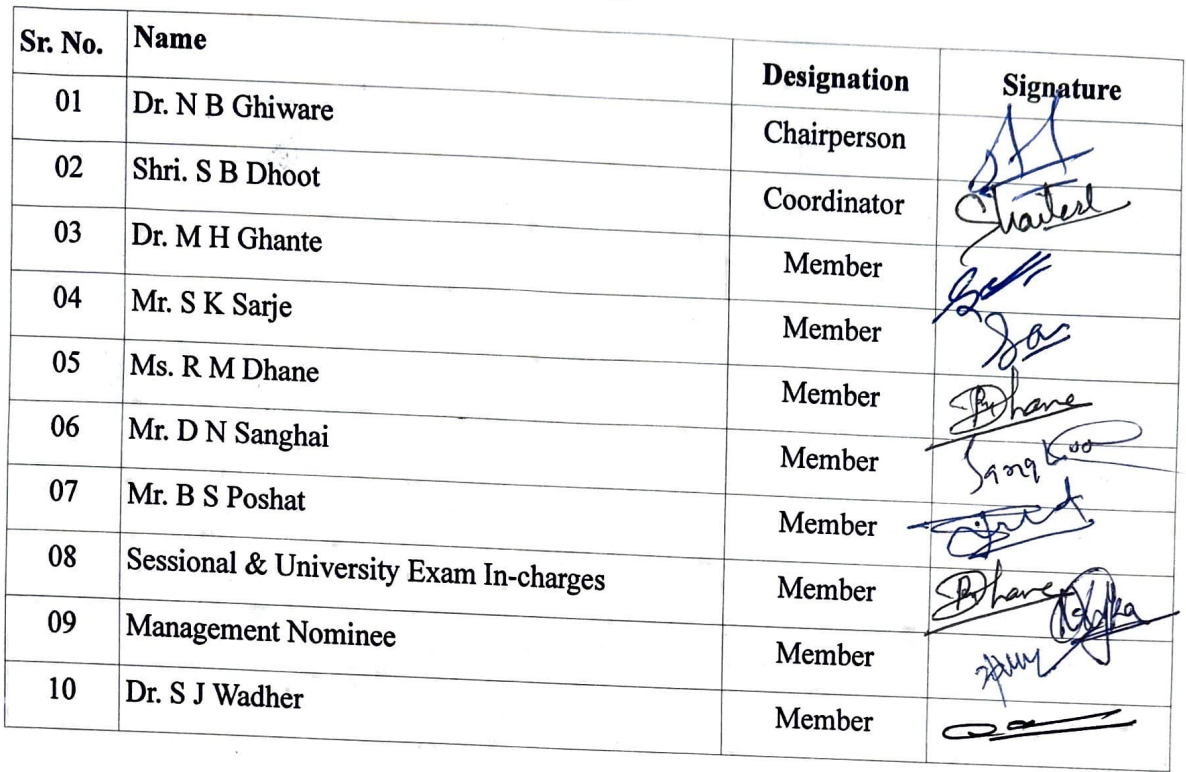 Sr. No. Name Designation Signature
01 Dr. N B Ghiware Chairperson
02 Shri. S B Dhoot Coordinator
03 Dr. M H Ghante Member
04 Mr. S K Sarje Member
05 Ms. R M Dhane Member
06 Mr. D N Sanghai Member
07 Mr. B S Poshat Member
08 Sessional & University Exam In-charges Member
09 Management Nominee Member
10 Dr. S J Wadher Member